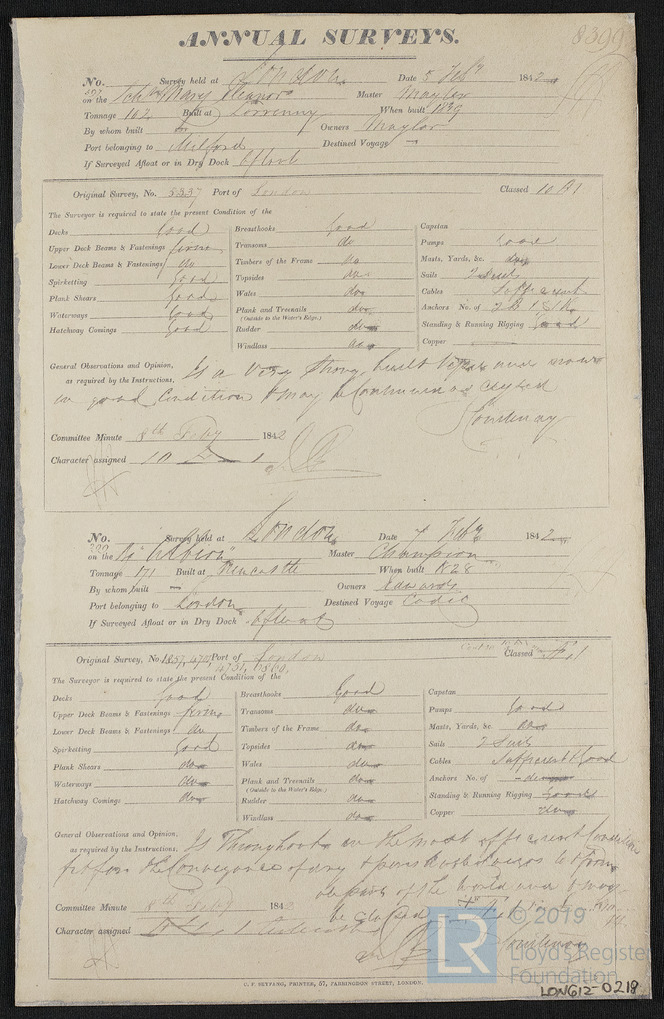 8399
ANNUAL SURVEYS.
No. Survey held at London Date 5 Feby 1842
on the Mary Eleanor Master Maylor
Tonnage 162 Built at Lorrenny When built 1839
By whom built Owners Maylor
Port belonging to Milford Destined Voyage —
If Surveyed Afloat or in Dry Dock Afloat
Original Survey, No. 5337 Port of London Classed 10 A 1
The Surveyor is required to state the present Condition of the
Decks Good
Upper Deck Beams & Fastenings firm
Lower Deck Beams & Fastenings do
Spirketting Good
Plank Shears Good
Waterways Good
Hatchway Comings Good
Breasthooks Good
Transoms do
Timbers of the Frame do
Topsides do
Wales do
Plank and Treenails do
(Outside to the Water's Edge.)
Rudder do
Windlass do
Capstan
Pumps Good
Masts, Yards, &c. do
Sails 2 Suits
Cables
Anchors No. of
Standing & Running Rigging Good
Copper
General Observations and Opinion, Is a Very Strong built Vessel and now
as required by the Instructions. in good Condition & may be Continued as Classed
Courtenay
Committee Minute 8th Feby 1842
Character assigned 10 A 1
No. Survey held at London Date 7 Feby 1842
on the "Albion" Master Champion
Tonnage 171 Built at Newcastle When built 1828
By whom built — Owners Edwards
Port belonging to London Destined Voyage Cadiz
If Surveyed Afloat or in Dry Dock Afloat
Original Survey, No. 1857, Port of London Classed
The Surveyor is required to state the present Condition of the
Decks Good
Upper Deck Beams & Fastenings firm
Lower Deck Beams & Fastenings do
Spirketting Good
Plank Shears do
Waterways do
Hatchway Comings do
Breasthooks Good
Transoms do
Timbers of the Frame do
Topsides do
Wales do
Plank and Treenails do
(Outside to the Water's Edge.)
Rudder do
Windlass do
Capstan
Pumps Good
Masts, Yards, &c.
Sails 2 Suits
Cables Sufficient & Good
Anchors No. of
Standing & Running Rigging Good
Copper do
General Observations and Opinion, Is Throughout in the most efficient Condition
as required by the Instructions. fit for the Conveyance of dry & perishable Cargoes to & from
all parts of the World and may
be Classed
Committee Minute 8th Feby 184
Character assigned
Courtenay
C. F. SEYFANG, PRINTER, 57, FARRINGDON STREET, LONDON.
LR © 2019
Lloyd's Register
Foundation
LON612-0218